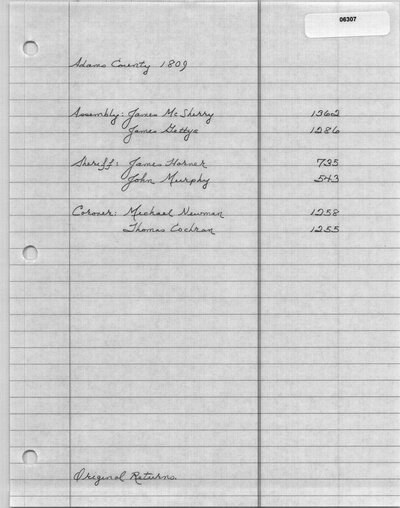 06307
Adams County 1809
Assembly: James McSherry 1362
James Gettys 1286
Sheriff: James Horner 735
John Murphy 543
Coroner: Michael Newman 1258
Thomas Cochran 1255
Original Returns.